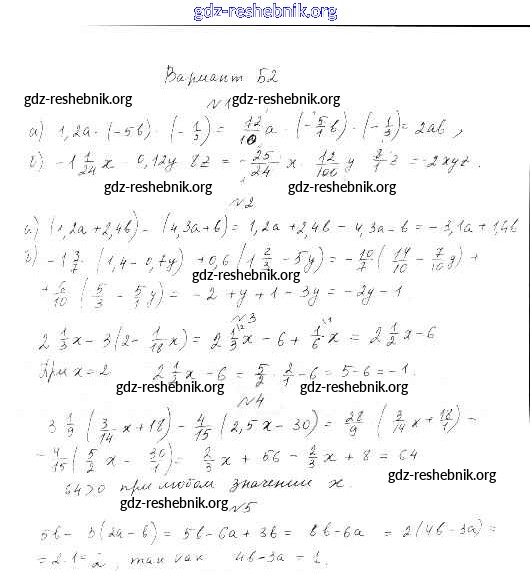 gdz-reshebnik.org
Вариант Б2
gdz-reshebnik.org
№1 gdz-reshebnik.org
а) 1,2a · (-5b) · (-1/3) = 12/10 a · (-5/1 b) · (-1/3) = 2ab,
б) -1 1/24 x · 0,12y · 8z = -25/24 x · 12/100 y · 8/1 z = -2xyz.
gdz-reshebnik.org gdz-reshebnik.org
№2
а) (1,2a+2,4b) - (4,3a+b) = 1,2a + 2,4b - 4,3a - b = -3,1a + 1,4b
б) -1 3/7 · (1,4 - 0,7y) + 0,6 (1 2/3 - 5y) = -10/7 (14/10 - 7/10 y) +
gdz-reshebnik.org
+ 6/10 (5/3 - 5/1 y) = -2 + y + 1 - 3y = -2y - 1.
№3
2 1/3 x - 3(2 - 1/18 x) = 2 1/3 x - 6 + 1/6 x = 2 1/2 x - 6
При x = 2 2 1/2 x - 6 = 5/2 · 2/1 - 6 = 5 - 6 = -1.
gdz-reshebnik.org gdz-reshebnik.org
№4
3 1/9 (3/14 x + 18) - 4/15 (2,5x - 30) = 28/9 (3/14 x + 18/1) -
- 4/15 (5/2 x - 30/1) = 2/3 x + 56 - 2/3 x + 8 = 64
gdz-reshebnik.org
64 > 0 при любом значении x.
gdz-reshebnik.org
№5
5b - 3(2a - b) = 5b - 6a + 3b = 8b - 6a = 2(4b - 3a) =
= 2·1 = 2, так как 4b - 3a = 1.